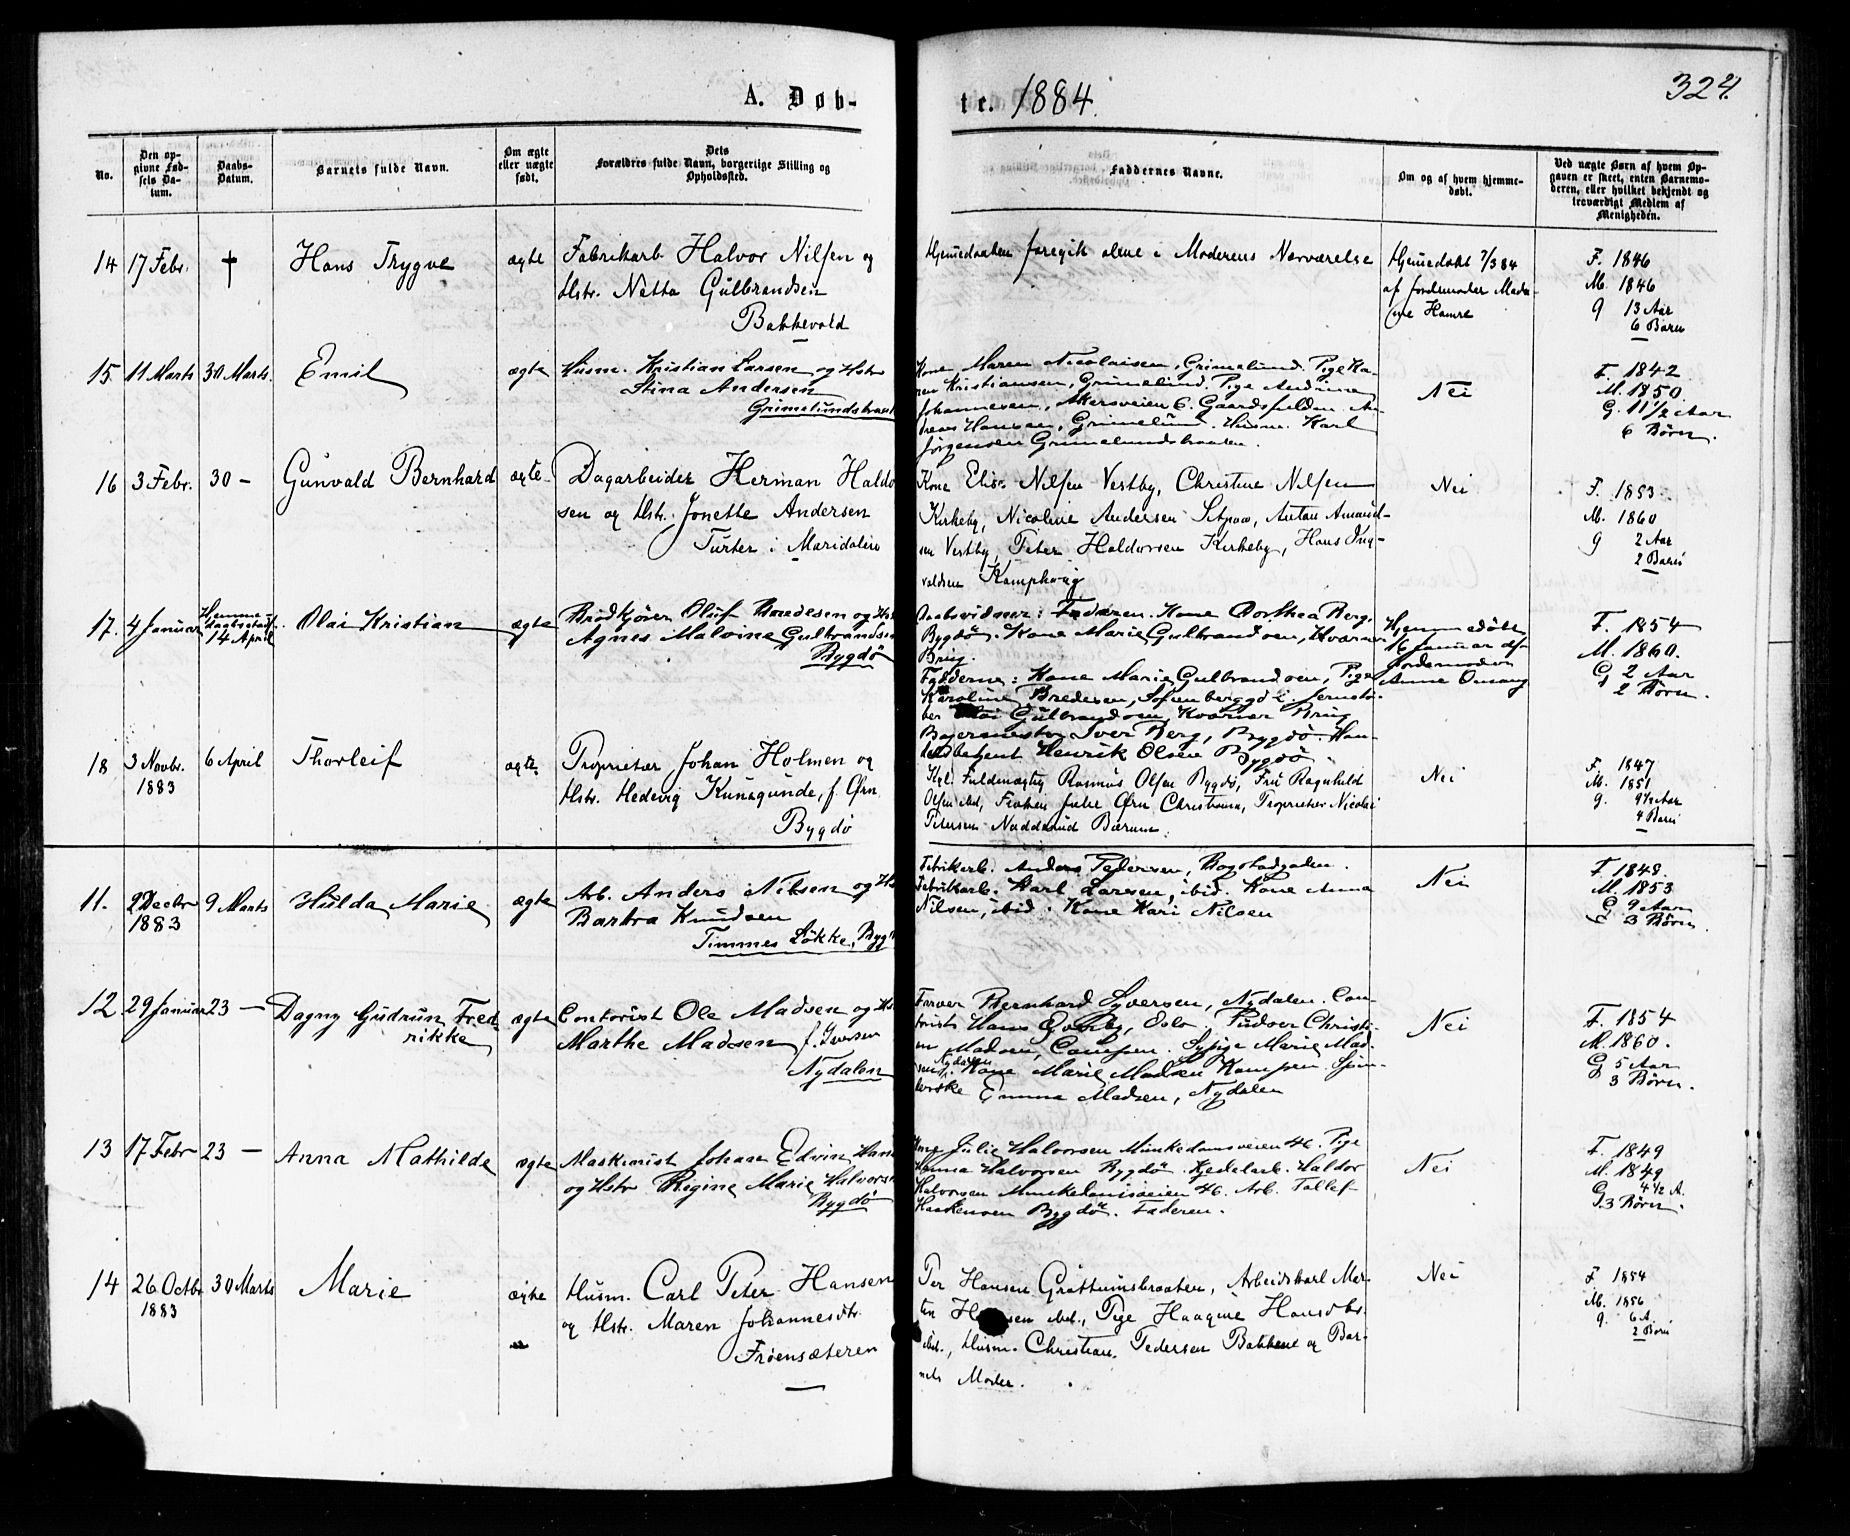 A. Døb-
te. 1884.
324.
No.
Den op-
givne Fød-
sels Da-
tum.
Daabs-
Datum.
Barnets fulde Navn.
Om ægte
eller uægte
født.
Dets
Forældres fulde Navn, borgerlige Stilling og
Opholdssted.
Faddernes Navne.
Om og af hvem hjemme-
døbt.
Ved uægte Børn af hvem Op-
gaven er skeet, enten Barnemo-
deren, eller hvilket bekjendt og
troværdigt Medlem af
Menigheden.
14 17 Febr. † Hans Trygve ægte
Fabrikarb Halvor Nilsen og
Hstr. Netta Gulbrandsen
Bakkevold
Hjemedaaben foregik alene i Moderens Nærværelse
Hjemedøbt 7/3 84
af Jordemoder
Hamre
F. 1846
M. 1846
g 13 Aar
6 Barn
15 11 Marts 30 Marts. Emil ægte
Husm. Kristian Larsen og Hstr
Stina Andersen
Grimelundsbraat
Kone Maren Nicolaisen, Grimelund. Pige Ka-
ren Kristiansen, Grimelund. Pige Andrine
Johannesen, Akersveien 6. Gaardsfuldm. An-
dreas Hansen, Grimelund. Husm. Karl
Jørgensen Grimelundsbraaten.
Nei
F. 1842
M. 1850.
G. 11 1/2 Aar
6 Børn.
16 3 Febr. 30 — Gunvald Bernhard ægte
Dagarbeider Herman Haldo
sen og Hstr. Jonette Andersen
Turter i Maridalen
Kone Elise Nilsen Vestby, Christine Nilsen
Kirkeby, Nicoline Andersen Anton Amund-
sen Vestby, Peter Haldorsen Kirkeby, Hans Ing-
valdsen Kamphoug
Nei
F. 1853
M. 1860
g 2 Aar
2 Barn
17. 4 Januar Hjemme-
14 April Olai Kristian ægte
Brødkjører Oluf Bredesen og Hst
Agnes Malvine Gulbrandsen
Bygdø
Daabsvidner: Faderen. Kone Dorthea Berg.
Bygdø. Kone Marie Gulbrandsen, Kværner
Brug.
Fadderne: Kone Marie Gulbrandsen, Pige
Karoline Bredesen, Sofienberggd 2. Jernstø-
ber Olai Gulbrandsen, Kværner Brug
Bagermester Iver Berg, Bygdø. Han-
delsbetjent Henrik Olsen Bygdø
Hjemmedøbt
16 Januar af
Jordemoder
Anne Omang
F. 1854
M. 1860.
G 2 Aar
2 Børn.
18 3 Novbr.
1883 6 April Thorleif ægte
Proprietær Johan Holmen og
Hstr. Hedevig Kunegunde, f. Ørn
Bygdø
Kgl. Fuldmægtig Rasmus Olsen Bygdø, Fru Ragnhild
Olsen ibd, Frøken Julie Ørn Christiania, Proprietær Nicolai
Petersen Nadderud Bærum.
Nei
F. 1847
M. 1851
g. 9 1/2 Aar
4 Barn
11. 2 Decbr
1883 9 Marts Hulda Marie ægte
Arb. Anders Nilsen og Hs
Barbra Knudsen
Timmes Løkke, Bygd
Fabrikarb. Anders Pedersen, Bogstadgaden.
Fabrikarb. Karl Larsen, ibid. Kone Anna
Nilsen, ibid. Kone Kari Nilsen
Nei
F. 1848.
M. 1853
G 9 Aar
3 Børn.
12. 29 Januar 23 — Dagny Gudrun Fred-
rikke ægte
Contorist Ole Madsen og Hs
Marthe Madsen f. Iversen
Nydalen
Farver Bernhard Syversen, Nydalen. Con-
torist Hans Oslo. Pudser Christi-
an Madsen, Campen. Sypige Marie Mad-
sen, Nydalen. Kone Marie Madsen Kampen. Spin-
derske Emma Madsen, Nydalen
Nei
F. 1854
M. 1860.
G 5 Aar
3 Børn.
13 17 Febr 23 — Anna Mathilde ægte
Maskinist Johan Edvin Hans
og Hstr Regine Marie Halvors
Bygdø
Kone Julie Halvorsen Munkedamsveien 46. Pige
Hanna Halvorsen Bygdø. Kjedelarb. Haldor
Halvorsen Munkedamsveien 46. Arb. Tollef
Haakensen Bygdø. Faderen.
Nei
F. 1849
M. 1849
G 4 1/2 A.
3 Børn.
14 26 Octbr
1883 30 Marts Marie ægte
Husm. Carl Peter Hansen
og Hstr. Maren Johannesdtr
Frøensæteren
Per Hansen Grøttumsbraaten, Arbeidskarl Mar-
tin ibd., Pige Haagine Hansdtr.
ibd., Husm. Christian Pedersen Bakkene og Bar-
nets Moder.
Nei
F 1854
M. 1856
g. 6 A.
2 Barn